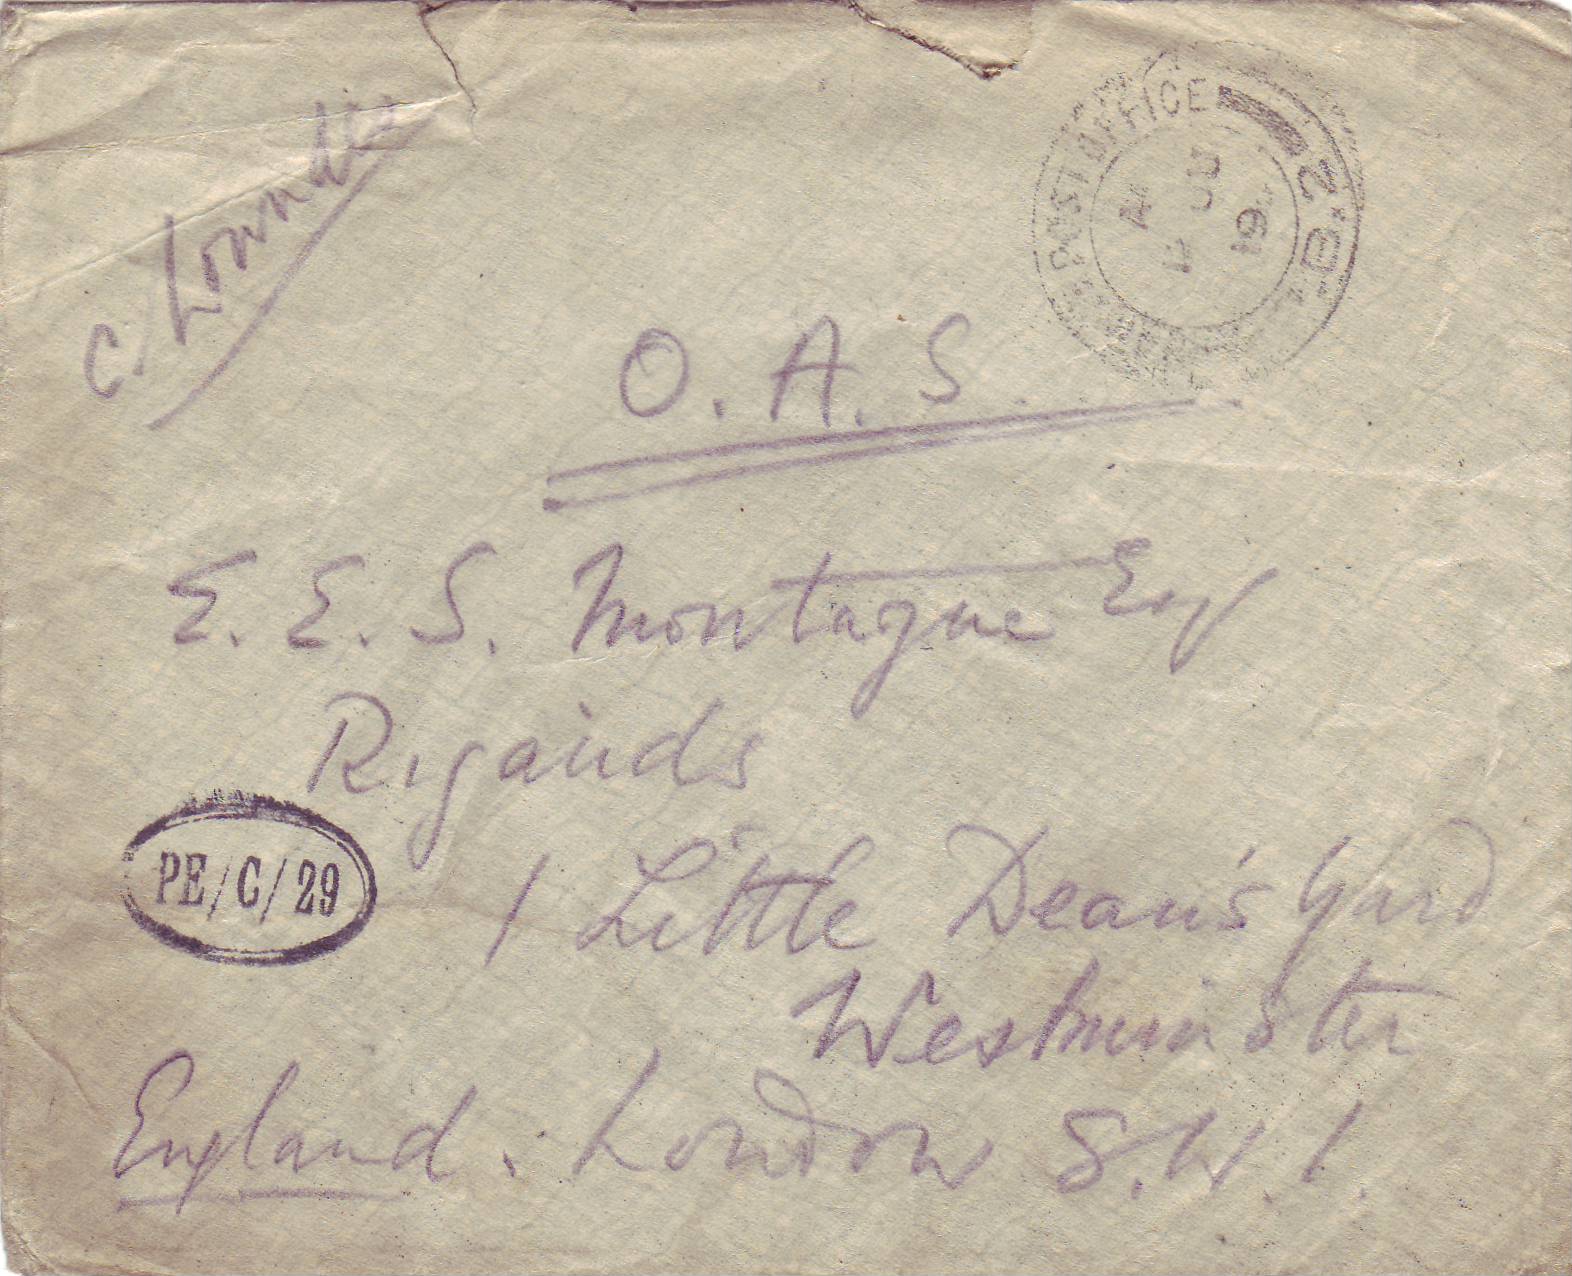 C. Lowndes
POST OFFICE
B.Z.
A
17 JU
19
O. A. S.
E. E. S. Montague Esq
Rigauds
PE/C/29
1 Little Dean's Yard
Westminster
England. London S.W.1.